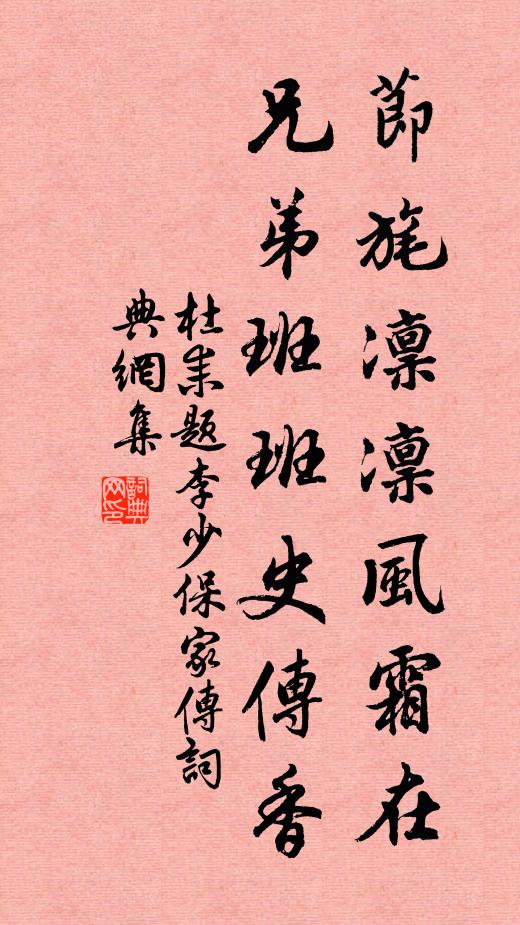 節旄凜凜風霜在
兄弟班班史傳香
杜耒題李少保家傳詞
典網集
詞典
网印